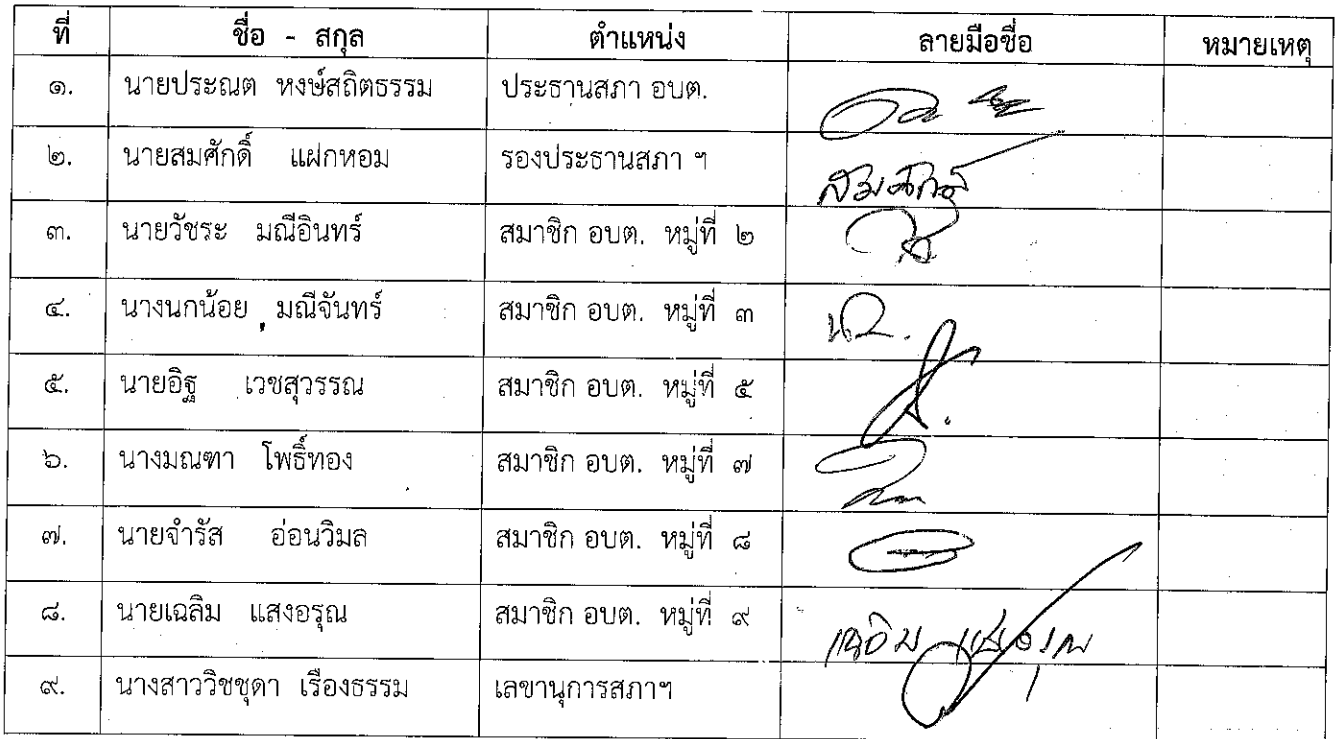 ที่ ชื่อ - สกุล ตำแหน่ง ลายมือชื่อ หมายเหตุ
๑. นายประณต หงษ์สถิตธรรม ประธานสภา อบต.
๒. นายสมศักดิ์ แผ่กหอม รองประธานสภา ฯ สมศักดิ์
๓. นายวัชระ มณีอินทร์ สมาชิก อบต. หมู่ที่ ๒
๔. นางนกน้อย มณีจันทร์ สมาชิก อบต. หมู่ที่ ๓
๕. นายอิฐ เวชสุวรรณ สมาชิก อบต. หมู่ที่ ๕
๖. นางมณฑา โพธิ์ทอง สมาชิก อบต. หมู่ที่ ๗
๗. นายจำรัส อ่อนวิมล สมาชิก อบต. หมู่ที่ ๘
๘. นายเฉลิม แสงอรุณ สมาชิก อบต. หมู่ที่ ๙
๙. นางสาววิชชุดา เรืองธรรม เลขานุการสภาฯ